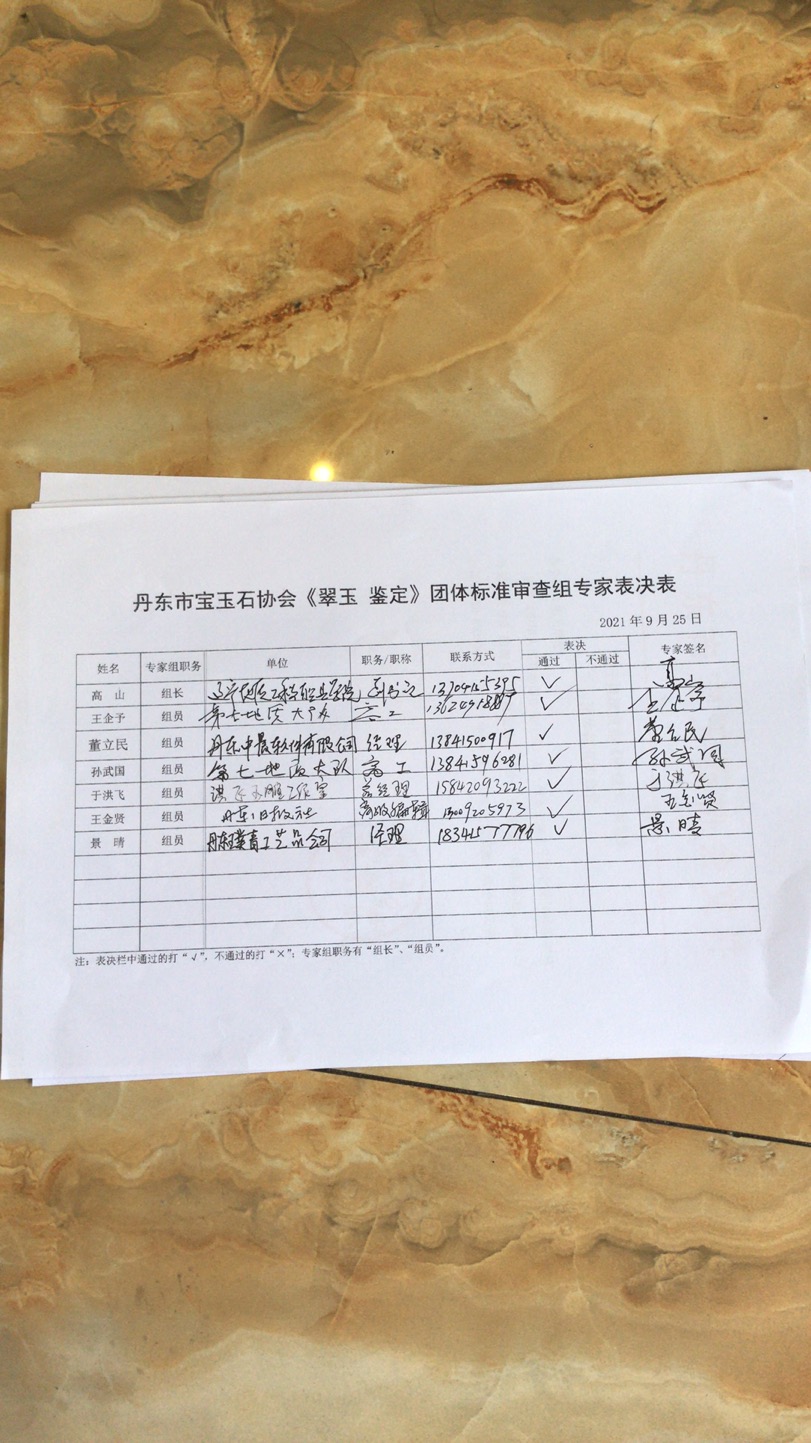 丹东市宝玉石协会《翠玉 鉴定》团体标准审查组专家表决表
2021 年 9 月 25 日
姓名 专家组职务 单位 职务/职称 联系方式 表决 专家签名
通过 不通过
高 山 组长 辽宁地质工程职业学院 副书记 13704155395 ✓ 高山
王企予 组员 第七地质大队 高工 ✓
董立民 组员 丹东中晨软件有限公司 经理 13841500917 ✓ 董立民
孙武国 组员 第七地质大队 高工 13841596281 ✓ 孙武国
于洪飞 组员 洪飞玉雕工作室 总经理 15842093222 ✓ 于洪飞
王金贤 组员 丹东日报社 高级编辑 ✓ 王金贤
景 晴 组员 工艺品公司 经理 18341577796 ✓ 景晴
注：表决栏中通过的打“√”，不通过的打“×”；专家组职务有“组长”、“组员”。